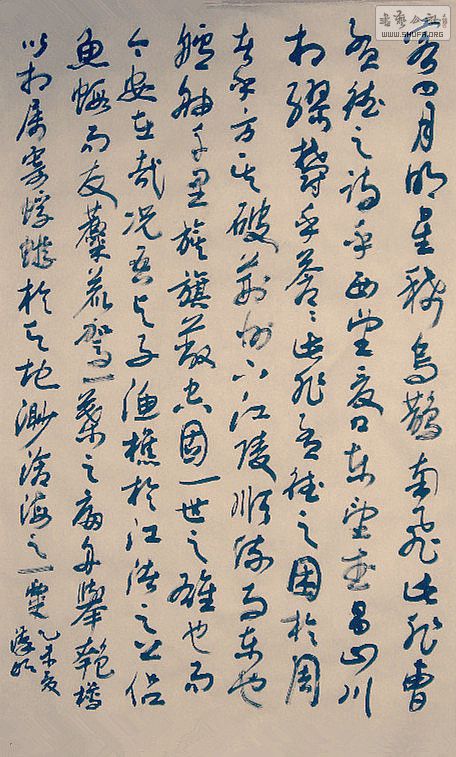 客曰月明星稀烏鵲南飛此非曹
孟德之詩乎西望夏口東望武昌山川
相繆鬱乎蒼蒼此非孟德之困於周
者乎方其破荊州下江陵順流而東也
艫舳千里旌旗蔽空固一世之雄也而
今安在哉況吾与子漁樵於江渚之上侶
魚蝦而友麋鹿駕一葉之扁舟舉匏樽
以相属寄蜉蝣於天地渺滄海之一粟
乙未夏
WWW.SHUFA.ORG